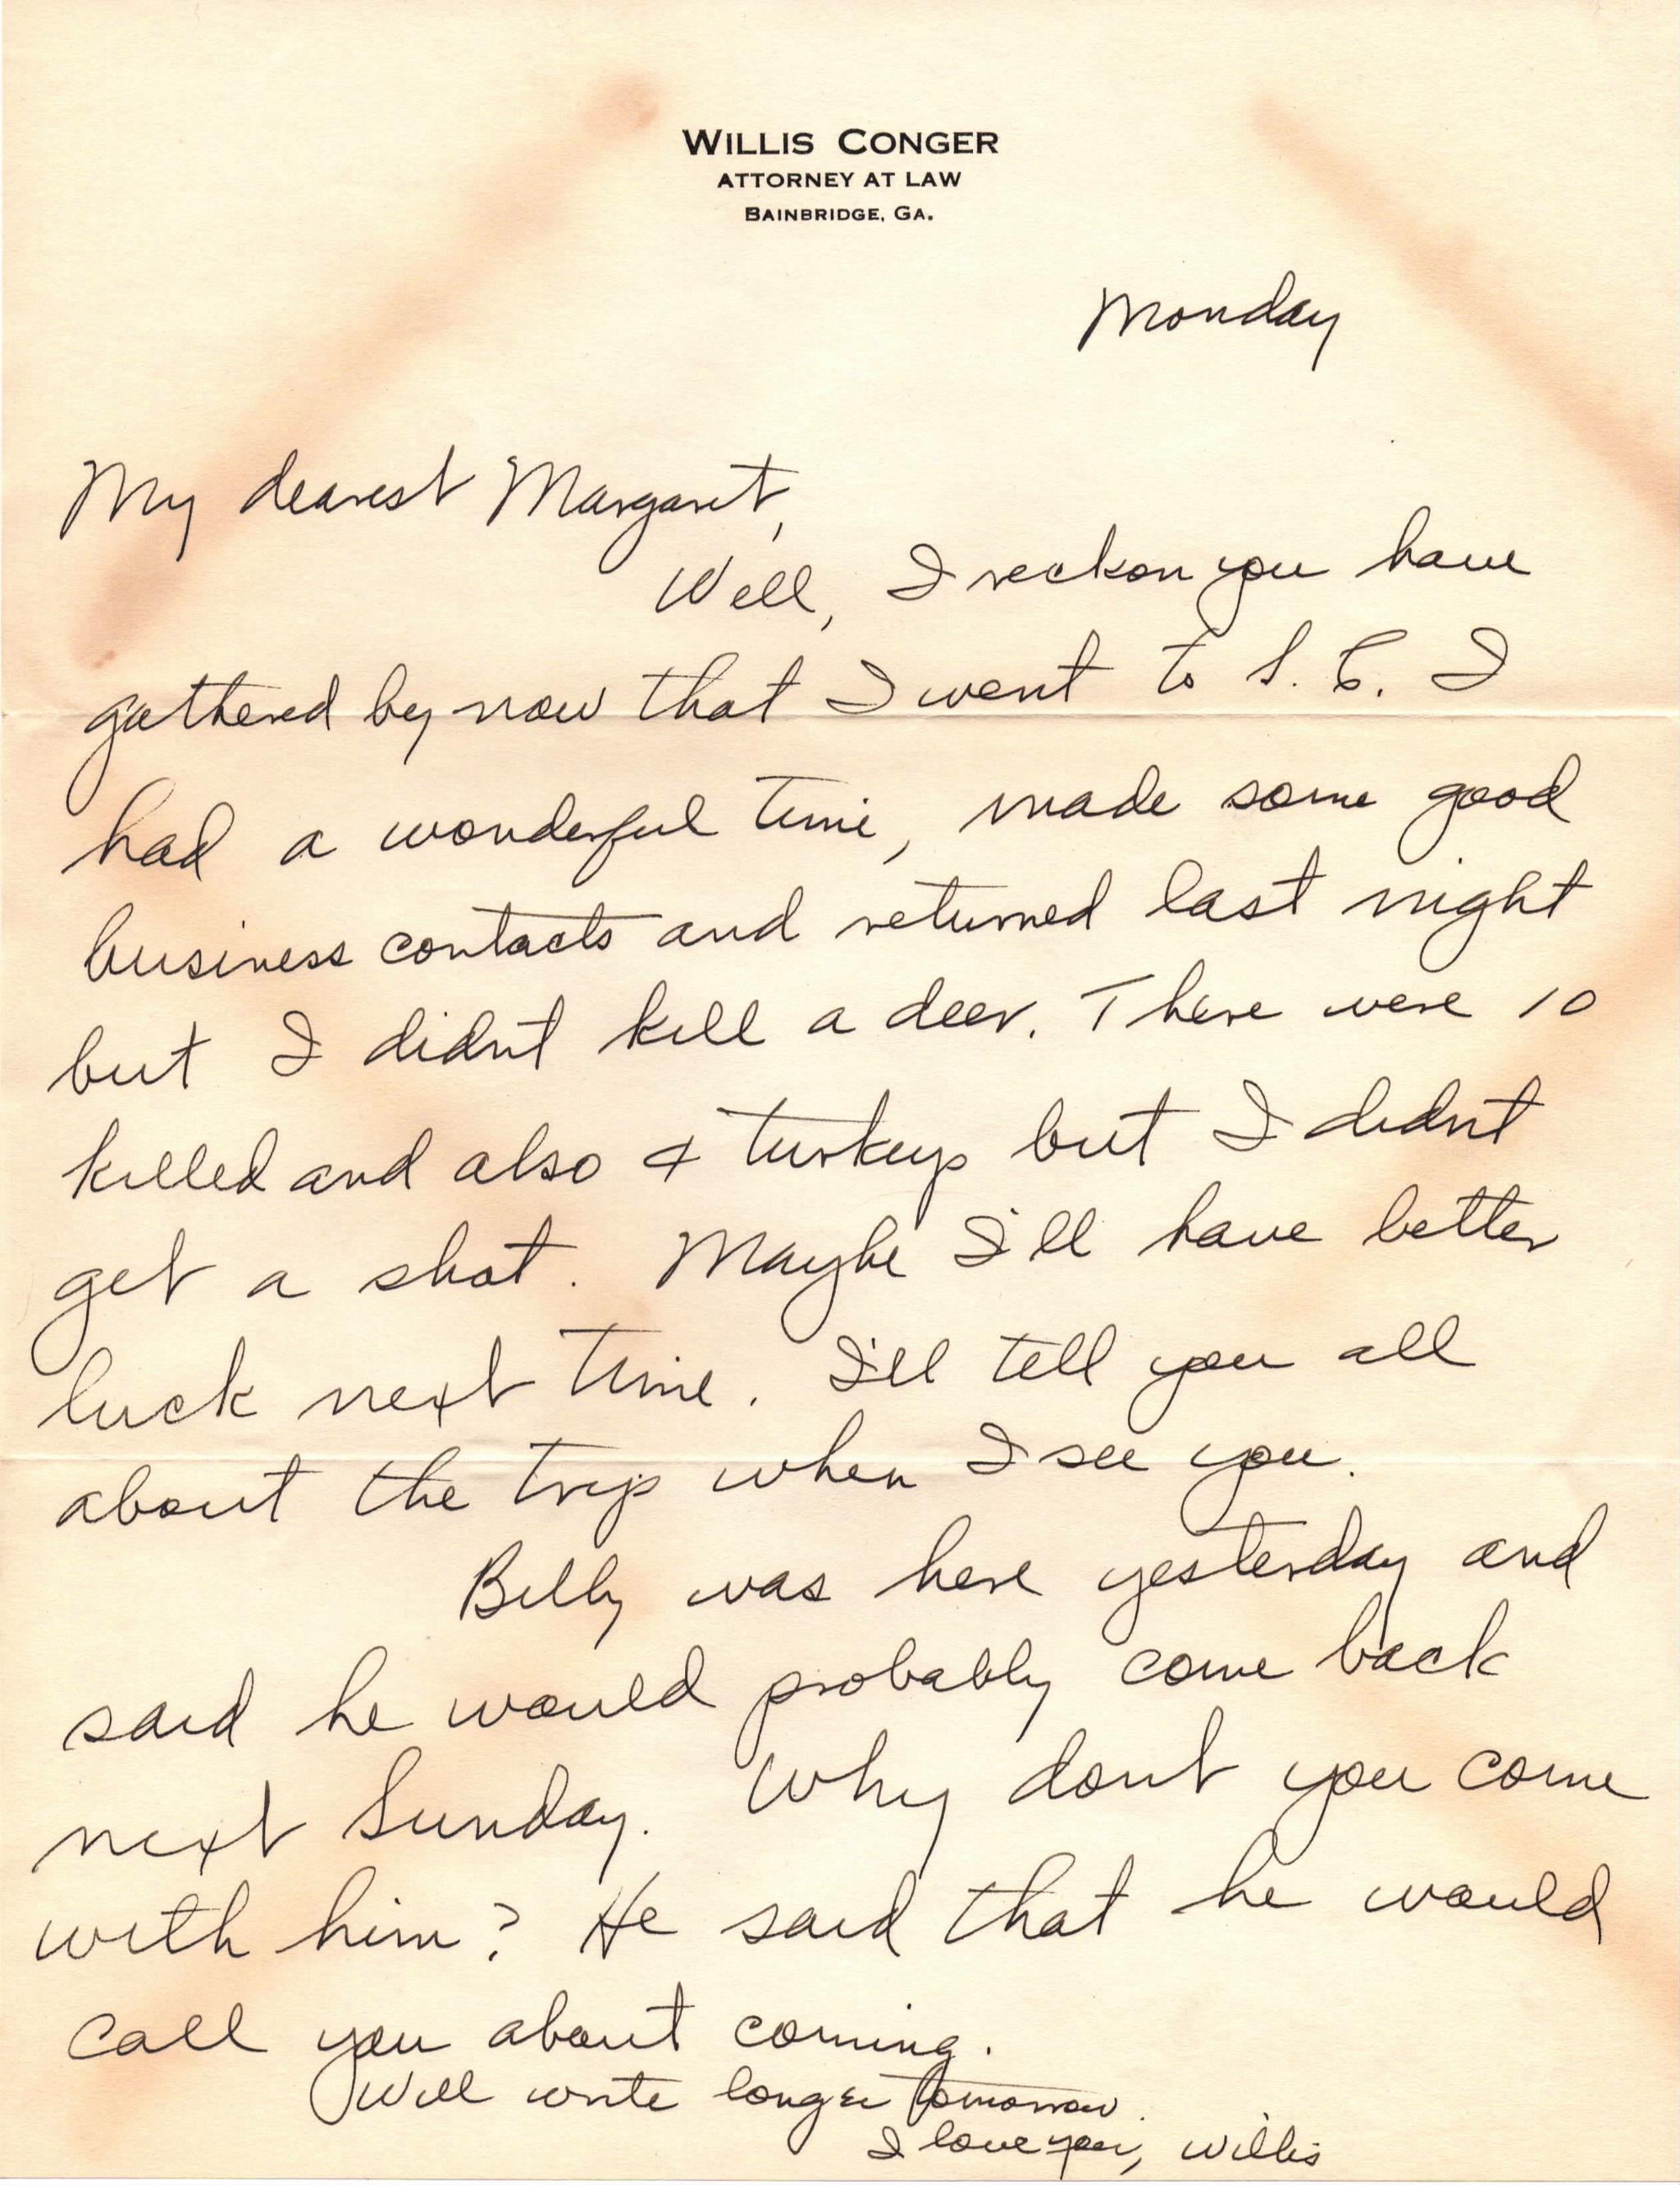 WILLIS CONGER
ATTORNEY AT LAW
BAINBRIDGE, GA.
Monday
My dearest Margaret,
Well, I reckon you have
gathered by now that I went to S. C. I
had a wonderful time, made some good
business contacts and returned last night
but I didn't kill a deer. There were 10
killed and also 4 turkeys but I didn't
get a shot. Maybe I'll have better
luck next time. I'll tell you all
about the trip when I see you.
Billy was here yesterday and
said he would probably come back
next Sunday. Why dont you come
with him? He said that he would
call you about coming.
Will write longer tomorrow.
I love you, Willis